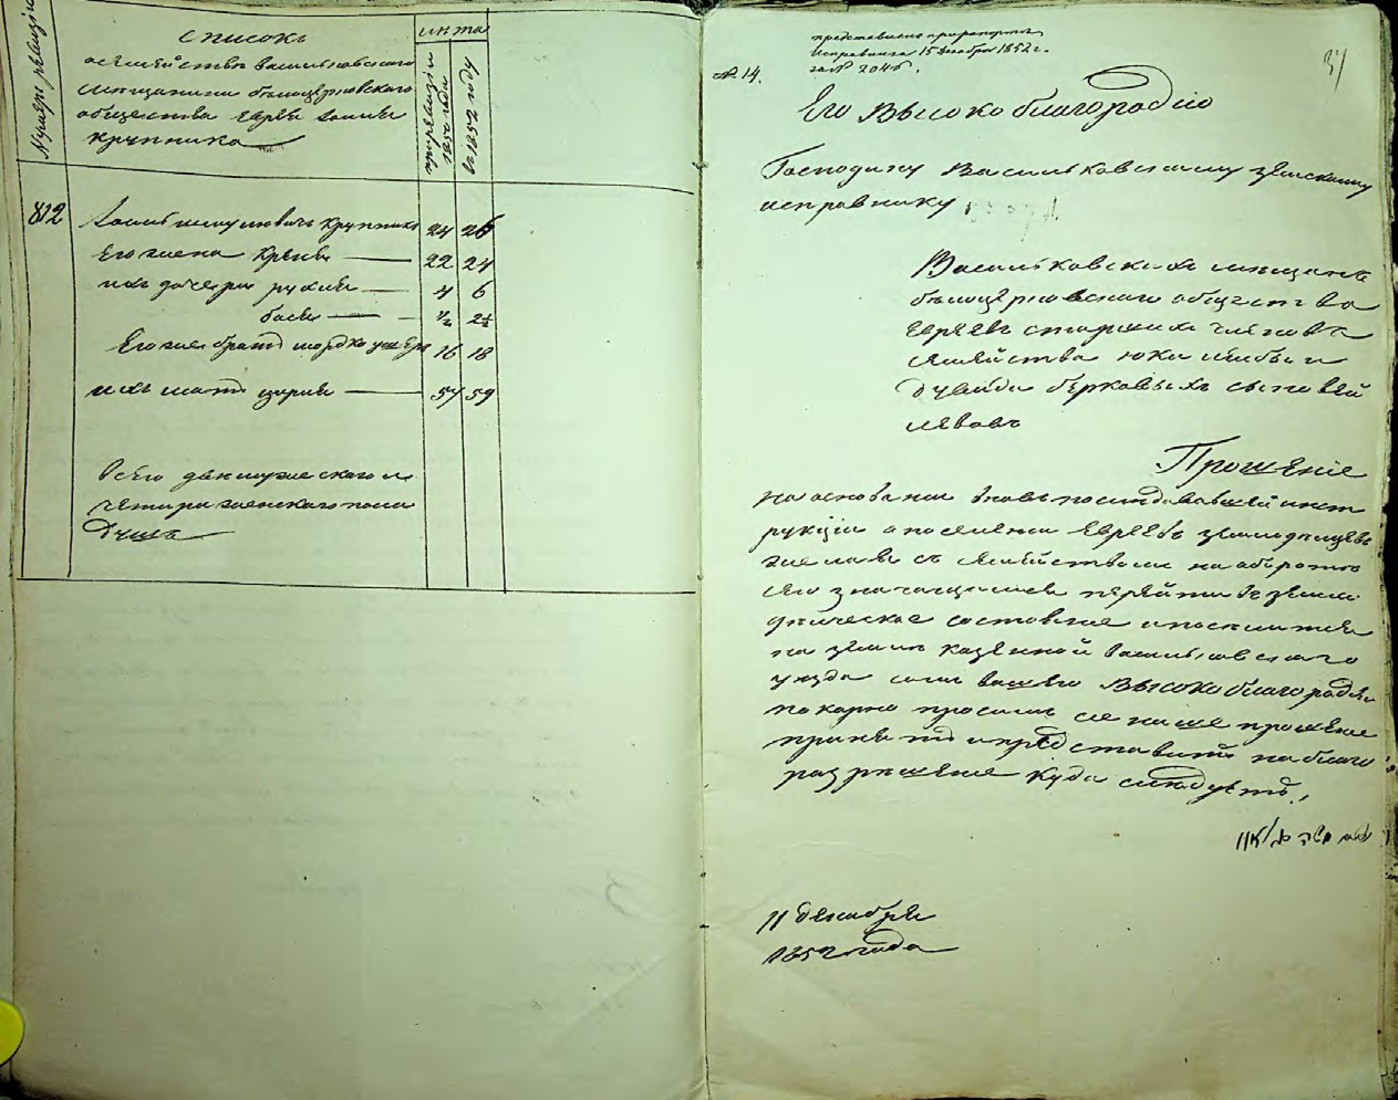 Нумеръ ревизіи
Списокъ
о семействѣ Васильковскаго
мещанина белоцерковскаго
общества еврея
Крупника
лѣта
по ревизіи 1850 года
въ 1852 году
812
Шмулiовичъ Крупникъ 24 26
Его жена Крейня 22 24
ихъ дочери рухля 4 6
бася ½ 2½
Его же братъ мордко 16 18
ихъ мать цирля 57 59
Всего два мужескаго и
четыри женскаго пола
Душъ
представлено при рапортѣ
Исправника 15 декабря 1852 г.
за № 2046.
№ 14.
34
Его Высокоблагородію
Господину Васильковскому земскому
исправнику
Васильковскихъ мещанъ
белоцерковскаго общества
Евреевъ старшихъ членовъ
семейства и
дувида берковыхъ сыновей
Прошеніе
на основаніи вновь последовавшей инст
рукціи о поселеніи Евреевъ земледельцевъ
желаем съ семействомъ на обороте
сего значащимся перейти въ земле
дельческое состояніе и поселится
на землѣ казенной Васильковскаго
уезда Вашего Высокоблагородія
покорно просимъ сие наше прошеніе
принять и представить на благо
разрешеніе куда следуетъ.
11 декабря
1852 года